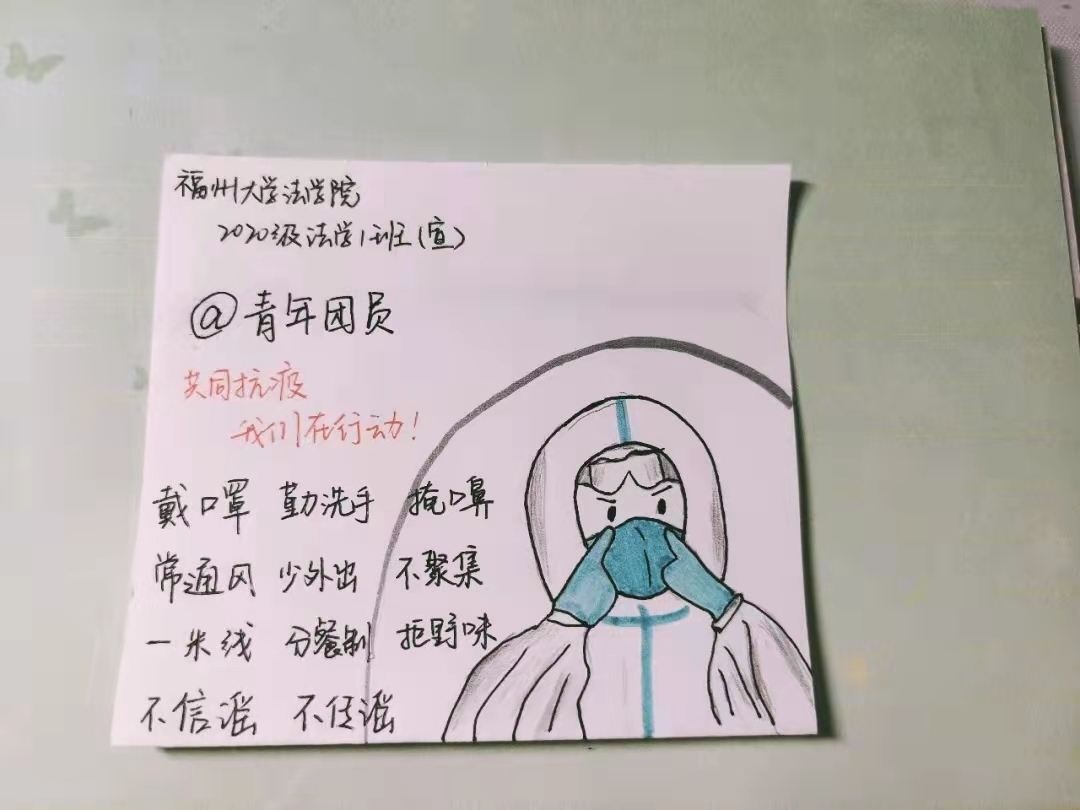 福州大学法学院
2020级法学1班(宣)
@青年团员
共同抗疫
我们在行动!
戴口罩 勤洗手 掩口鼻
常通风 少外出 不聚集
一米线 分餐制 拒野味
不信谣 不传谣